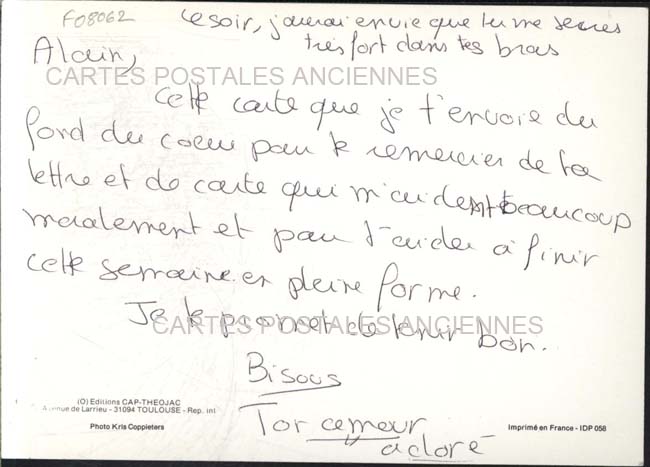 F08062
ce soir, j'aurai envie que tu me serres
très fort dans tes bras
Alain,
CARTES POSTALES ANCIENNES
Cette carte que je t'envoie du
fond du coeur pour te remercier de ta
lettre et de carte qui m'aident beaucoup
moralement et pour t'aider à finir
cette semaine en pleine forme.
Je te promet de tenir bon.
CARTES POSTALES ANCIENNES
Bisous
(O) Editions CAP-THEOJAC
Avenue de Larrieu - 31094 TOULOUSE - Rep. int
Photo Kris Coppieters
Ton
adoré
Imprimé en France - IDP 058